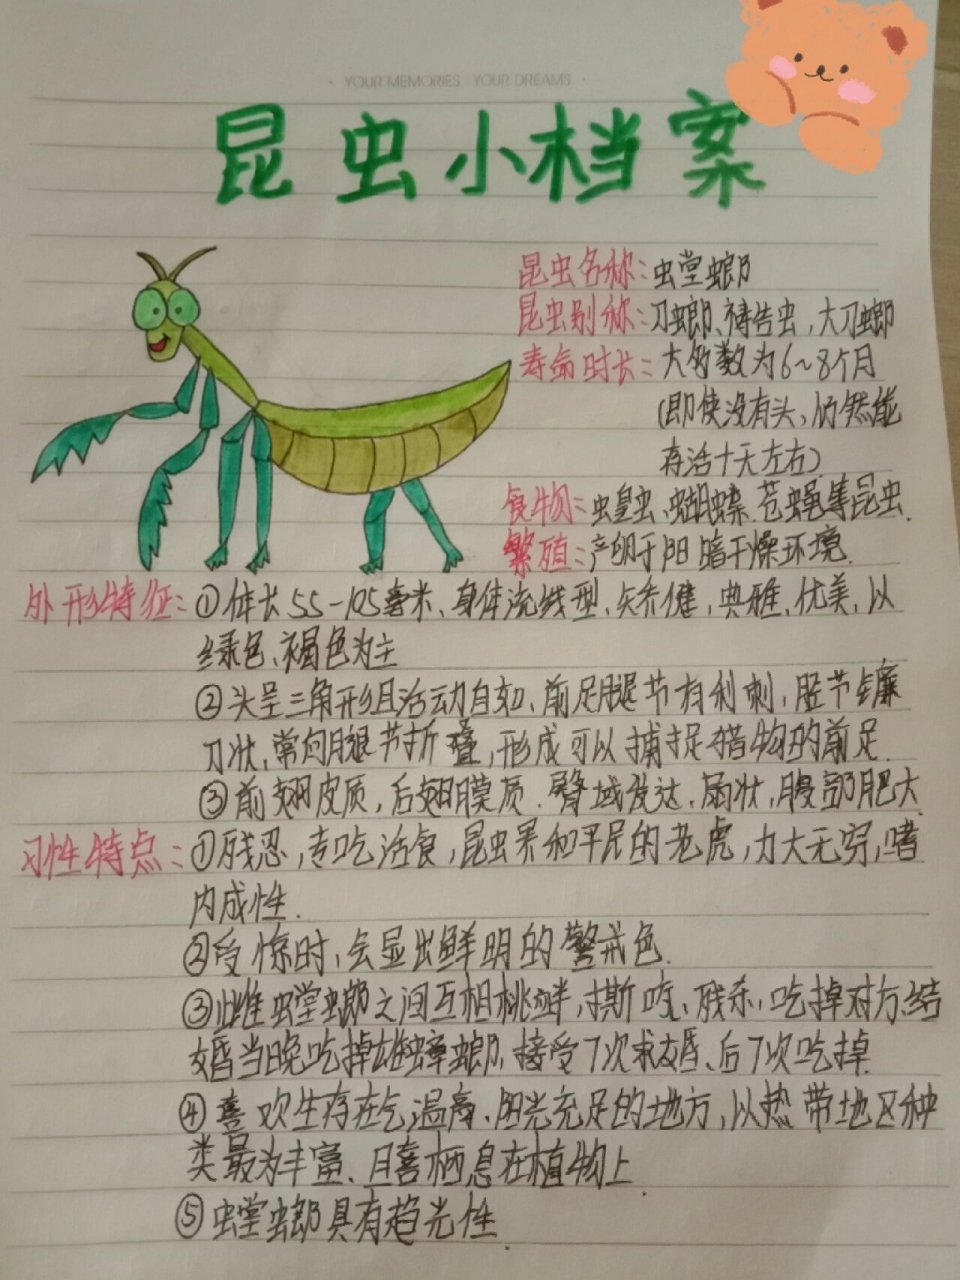 · YOUR MEMORIES YOUR DREAMS ·
昆虫小档案
昆虫名称：螳螂
昆虫别称：刀螂、祷告虫，大刀螂
寿命时长：大多数为6～8个月
（即使没有头、仍然能
存活十天左右）
食物：蝗虫、蝴蝶、苍蝇等昆虫.
繁殖：产卵于阴暗干燥环境.
外形特征：①体长55-105毫米、身体流线型、矫健，典雅、优美，以
绿色、褐色为主
②头呈三角形且活动自如、前足腿节有利刺，胫节镰
刀状，常向腿节折叠，形成可以捕捉猎物的前足.
③前翅皮质，后翅膜质.臀域发达、扇状，腹部肥大
习性特点：①残忍，专吃活食，昆虫界和平民的老虎，力大无穷，嗜
肉成性.
②受惊时，会显出鲜明的警戒色.
③雌螳螂之间互相挑衅，撕咬、残杀，吃掉对方.结
婚当晚吃掉雄螳螂，接受7次求婚、后7次吃掉.
④喜欢生存在气温高、阳光充足的地方，以热带地区种
类最为丰富、且喜栖息在植物上.
⑤螳螂具有趋光性.